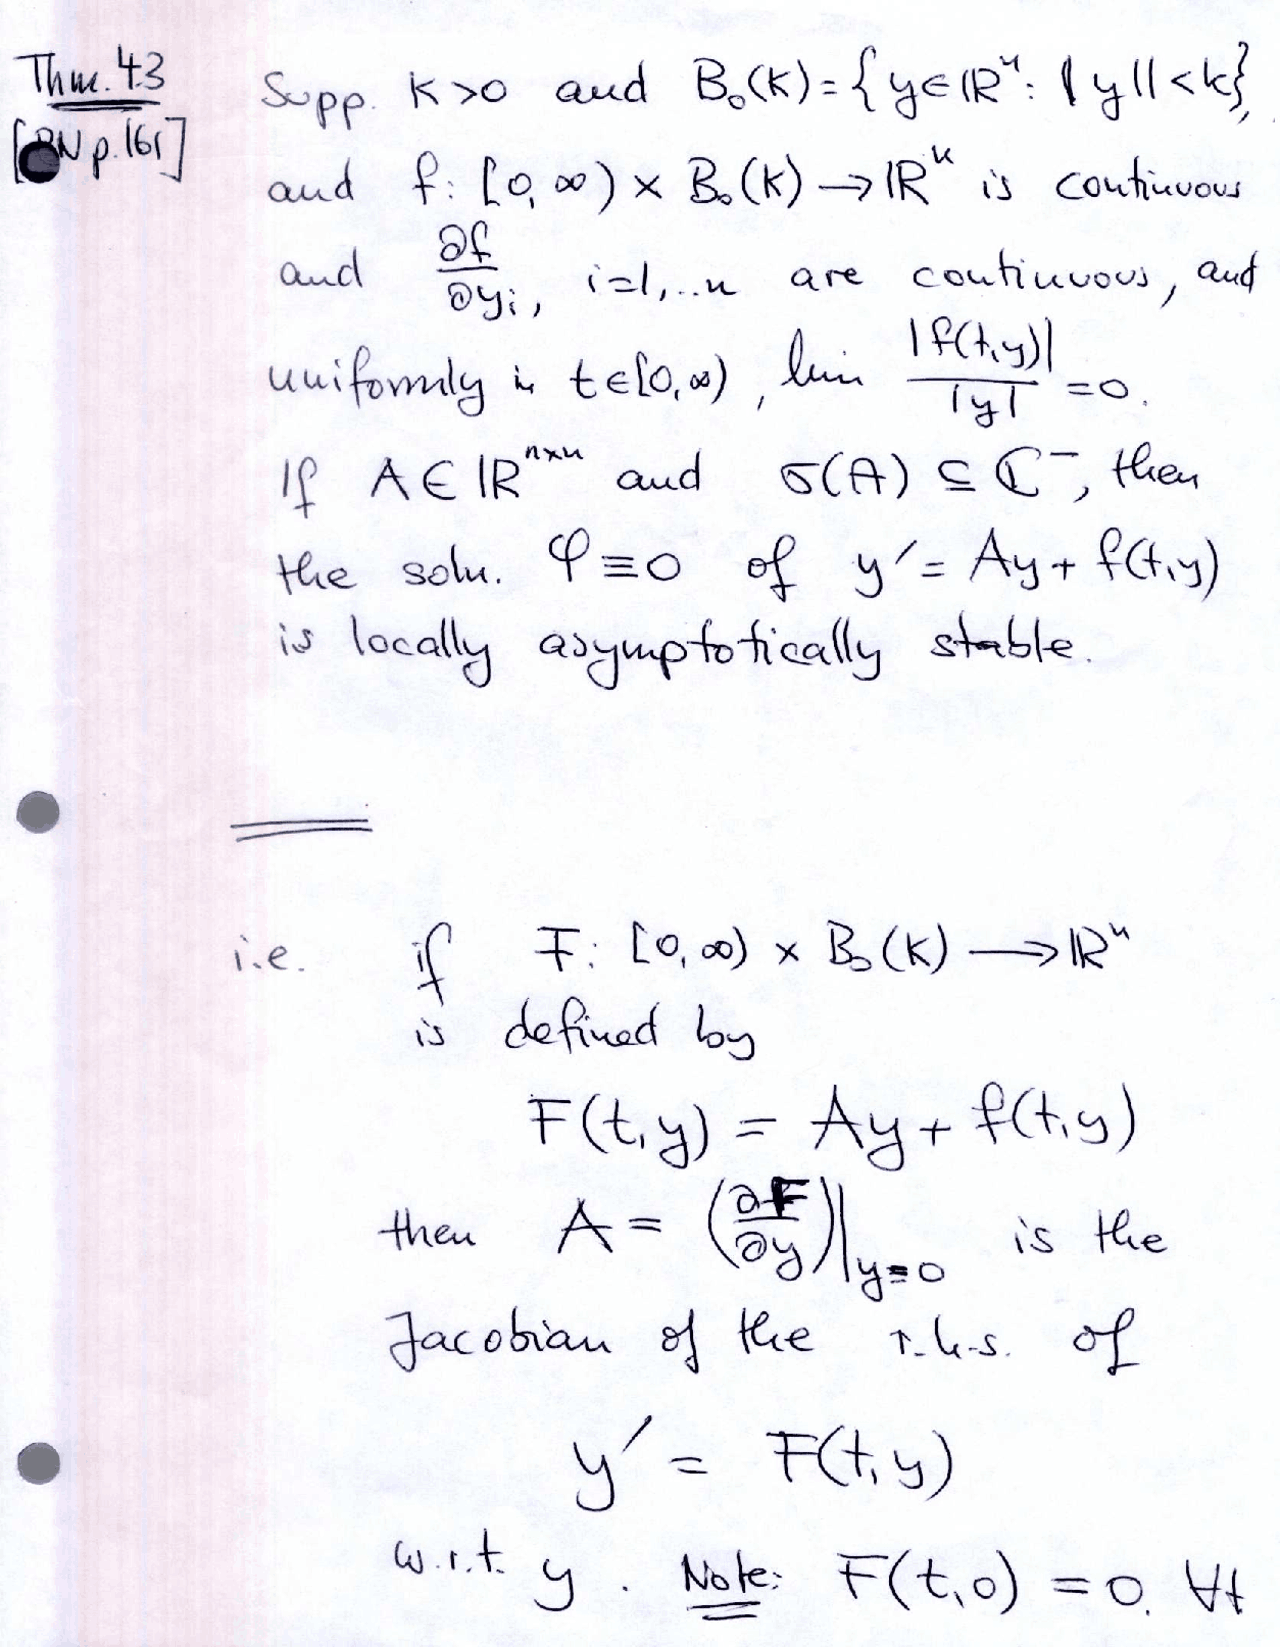 Thm. 4.3 Supp. K>0 and B₀(K)={y∈ℝⁿ: ‖y‖<K},
[BN p.161] and f: [0,∞) × B₀(K) → ℝⁿ is continuous
and ∂f/∂yᵢ, i=1,..n are continuous, and
uniformly in t∈[0,∞), lim |f(t,y)|/|y| =0.
If A ∈ ℝⁿˣⁿ and σ(A) ⊆ ℂ⁻, then
the soln. φ≡0 of y′= Ay + f(t,y)
is locally asymptotically stable.
i.e. if F: [0,∞) × B₀(K) ⟶ ℝⁿ
is defined by
F(t,y) = Ay + f(t,y)
then A = (∂F/∂y)|y=0 is the
Jacobian of the r.h.s. of
y′ = F(t,y)
w.r.t. y. Note: F(t,0) = 0. ∀t